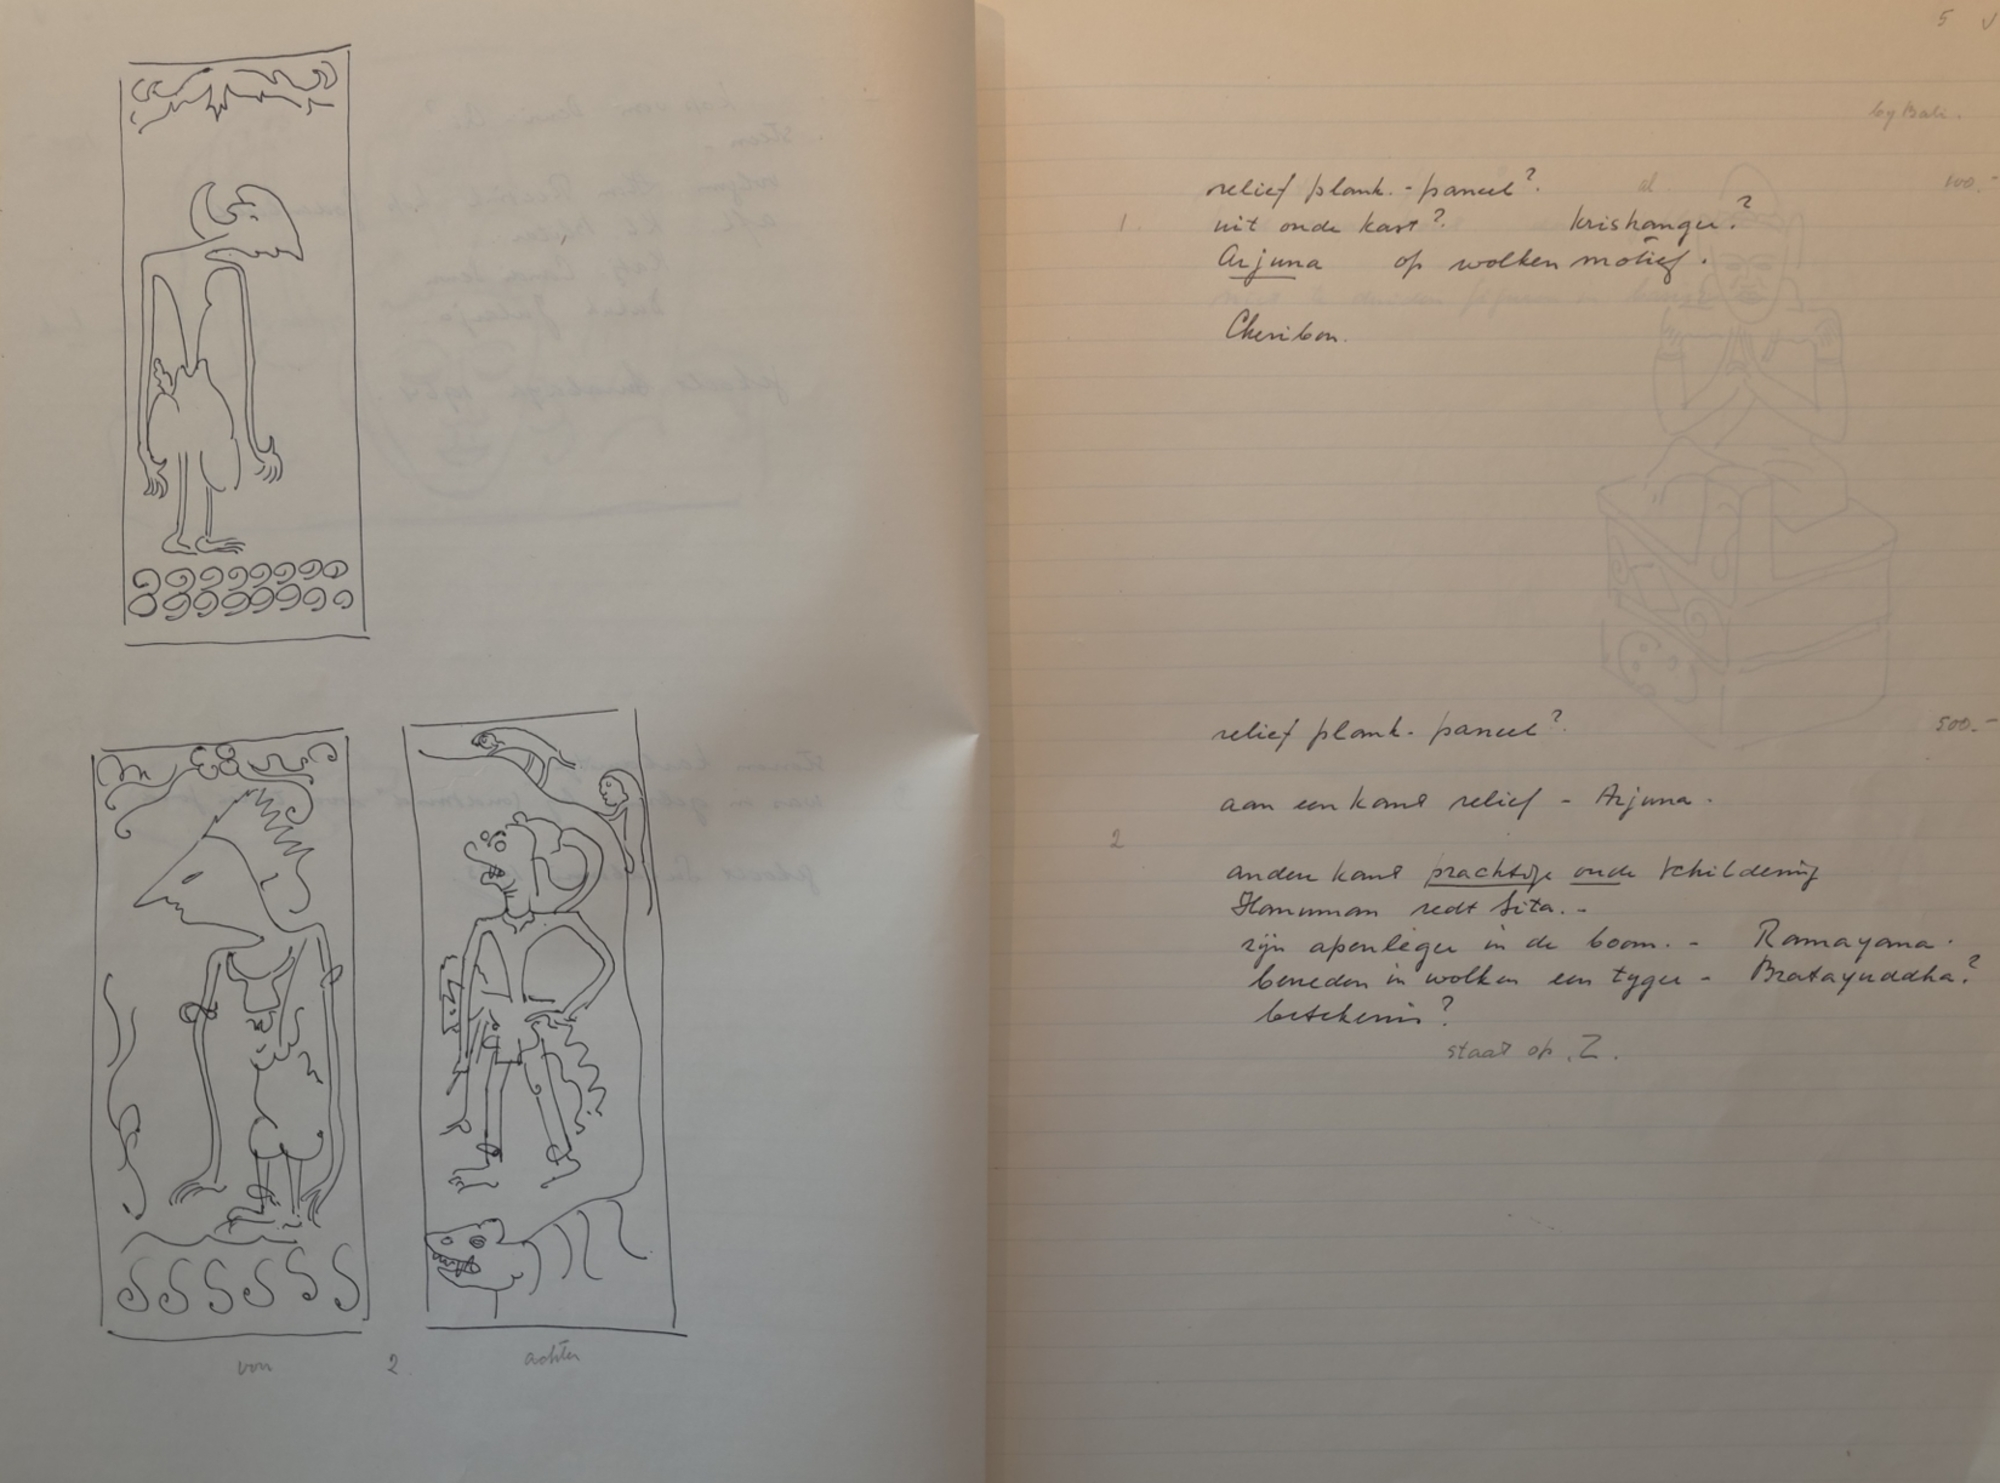 von 2. achter
5
by Bali.
relief plank. - paneel? al 100.-
1. uit oude kast? krishanger?
Arjuna op wolken motief.
Cheribon.
relief plank. paneel? 500.-
aan een kant relief - Arjuna.
2
andere kant prachtige oude schildering
Hanuman redt Sita. -
zijn apenleger in de boom. - Ramayana.
beneden in wolken een tyger - Bratayuddha?
betekenis?
staat op Z.